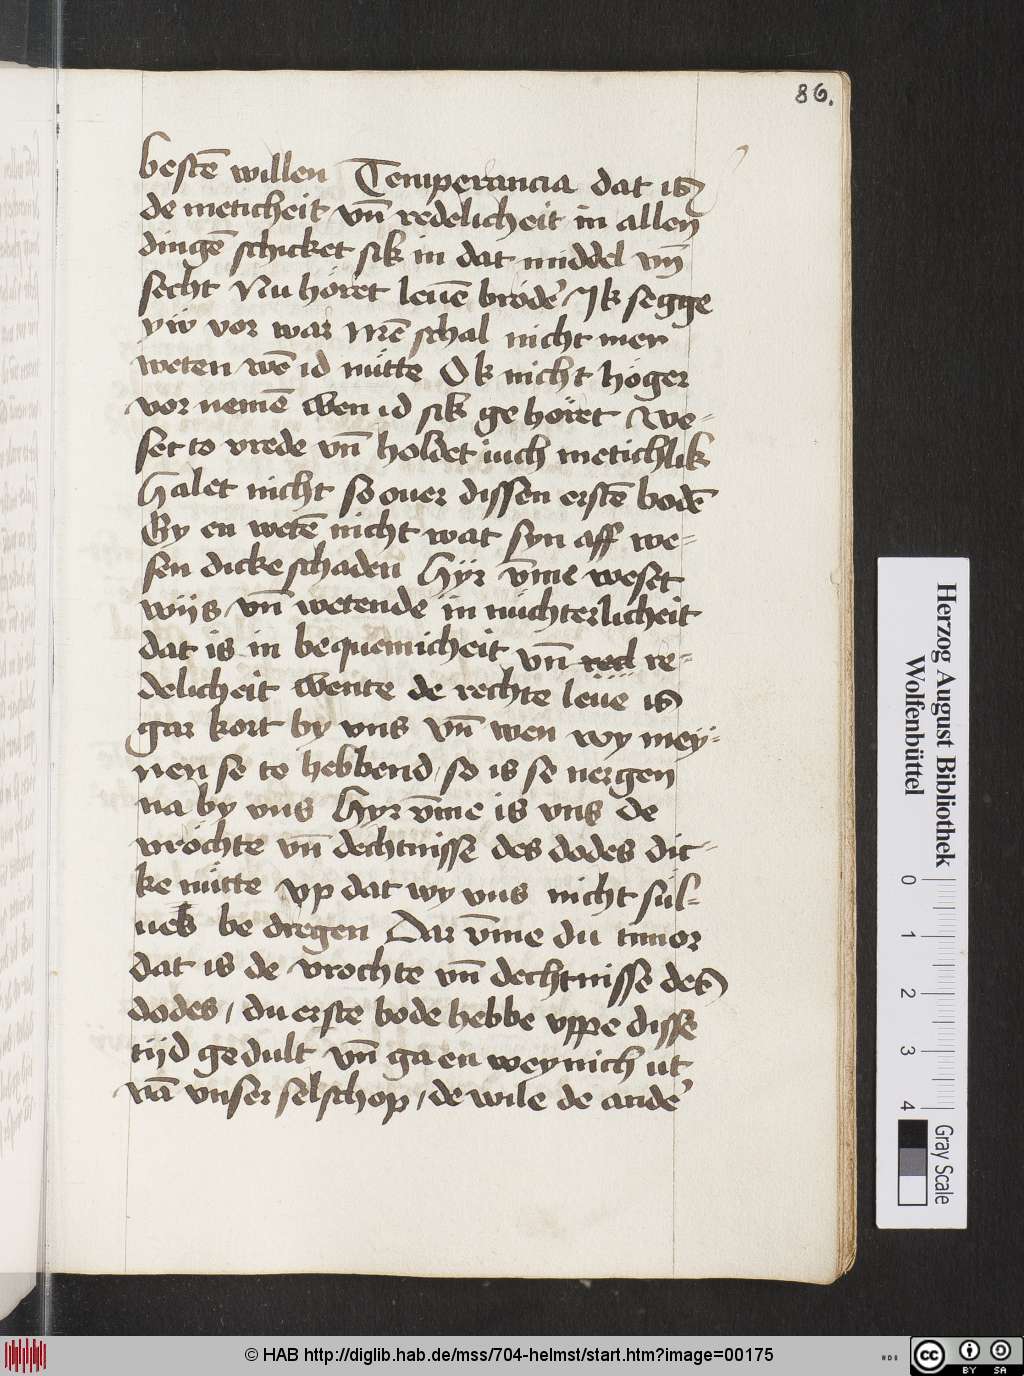 86.
bestē willen Temperancia dat is
de meticheit vn̄ redelicheit in allen
dingē schicket sik in dat middel vn̄
secht Nu höret leuē brödeˀ Ik segge
yw vor war Mē schal nicht mer
weten wē id nütte Ok nicht höger
vor nemē wen id sik ge höret We-
set to vrede vn̄ holdet iuch metichlik
Halet nicht so ouer dissen erstē bodē
Gy en wetē nicht wat syn aff we-
sen dicke schaden Hyr v̄me weset
wiis vn̄ wetende in nüchterlicheit
dat is in bequemicheit vn̄ red re-
delicheit Wente de rechte leue is
gar kort by vns vn̄ wen wy mey-
nen se to hebbend, so is se nergen
na by vns Hyr v̄me is vns de
vröchte vn̄ dechtnisse des dodes dic-
ke nütte vp dat wy vns nicht sül-
ues be dregen Dar v̄me du timor
dat is de vrochte vn̄ dechtnisse des
dodes, du erste bode hebbe vppe disse
tijd gedult vn̄ ga en weynich ut
vā vnser selschop, de wile de andeˀ
Herzog August Bibliothek
Wolfenbüttel
0 1 2 3 4
Gray Scale
© HAB http://diglib.hab.de/mss/704-helmst/start.htm?image=00175
cc BY SA